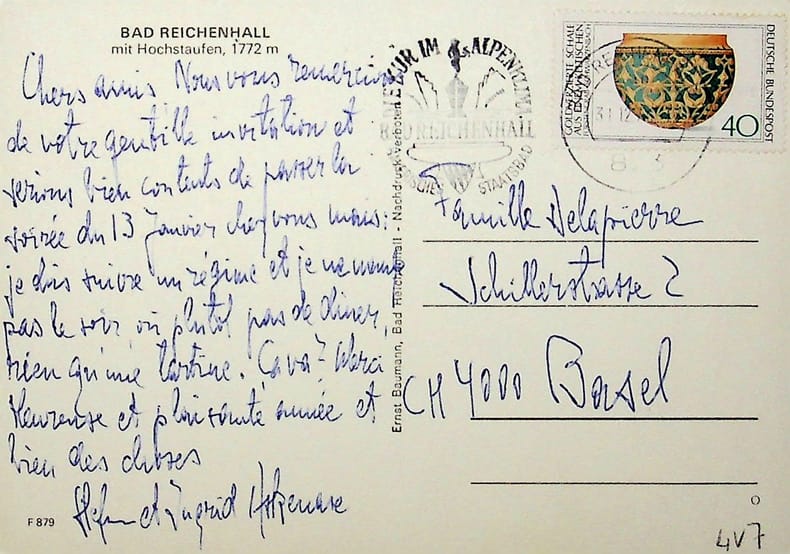 BAD REICHENHALL
mit Hochstaufen, 1772 m
Chers amis Nous vous remercions
de votre gentille invitation et
serions bien contents de passer la
soirée du 13 Janvier chez vous mais:
je dois suivre un régime et je ne mange
pas le soir, ou plutot pas de diner,
rien qu'une tartine. Ça va? Merci
Heureuse et plaisante année et
bien des choses
Stefan et Ingrid
F 879
Ernst Baumann, Bad Reichenhall - Nachdruck verboten
KUR IM ALPENKLIMA
BAD REICHENHALL
STAATSBAD
GOLDVERZIERTE SCHALE
DEUTSCHE BUNDESPOST
40
Famille Delapierre
Schillerstrasse 2
CH 4000 Basel
4V7